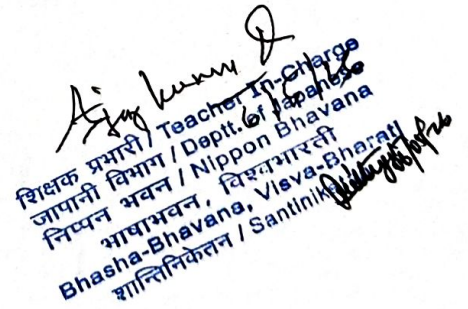 Ajay Kumar D
शिक्षक प्रभारी / Teacher In-Charge
जापानी विभाग / Deptt. of Japanese
निप्पन भवन / Nippon Bhavana
भाषाभवन, विश्वभारती
Bhasha-Bhavana, Visva-Bharati
शान्तिनिकेतन / Santiniketan